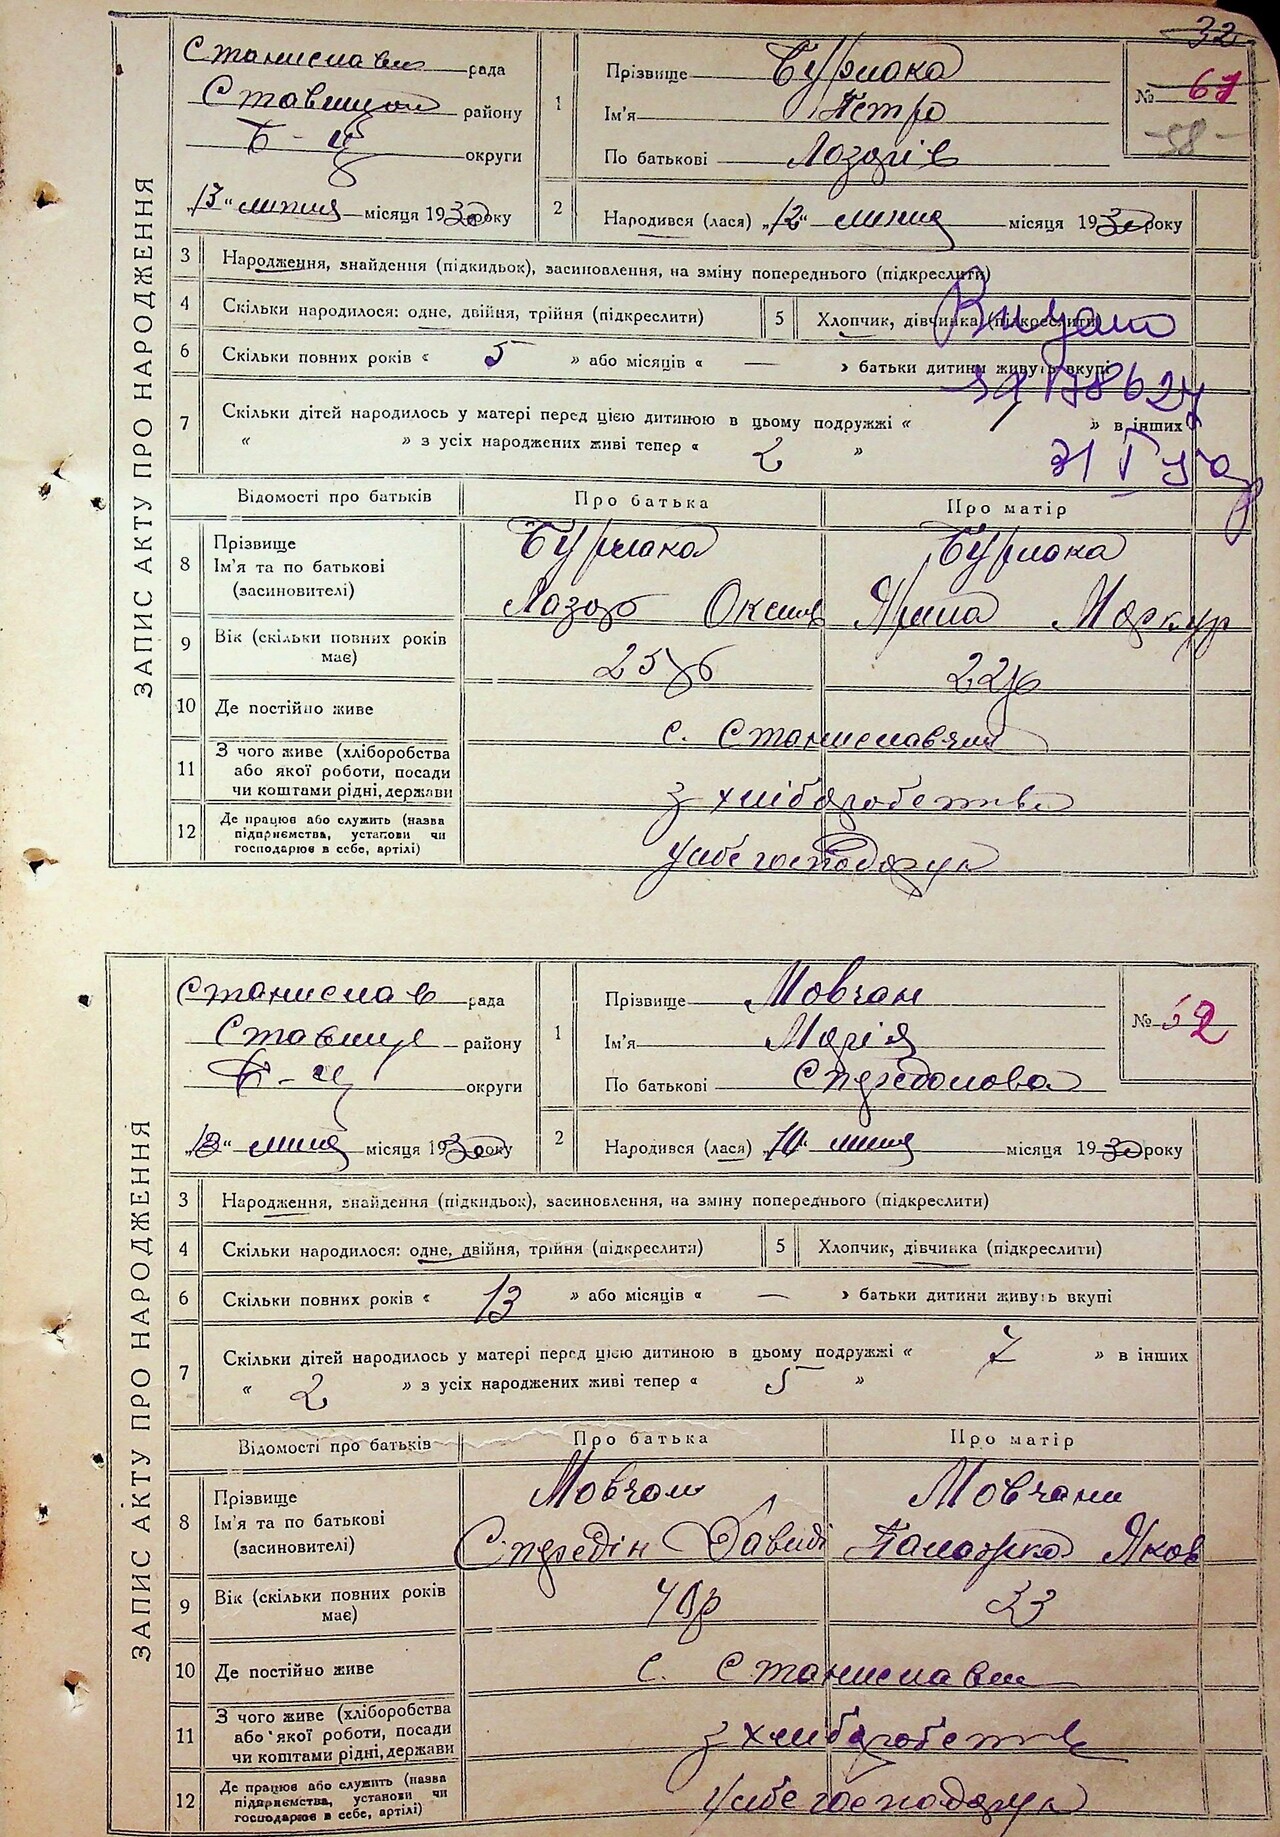 32
ЗАПИС АКТУ ПРО НАРОДЖЕННЯ
Станиславч рада
Ставищан району
Б-Ц округи
„13“ липня місяця 1930 року
1 Прізвище Бурлака
Ім'я Петро
По батькові Лазарів
№ 61
58
2 Народився (лася) „12“ липня місяця 1930 року
3 Народження, знайдення (підкидьок), засиновлення, на зміну попереднього (підкреслити)
4 Скільки народилося: одне, двійня, трійня (підкреслити) 5 Хлопчик, дівчинка (підкреслити)
6 Скільки повних років « 5 » або місяців « — » батьки дитини живуть вкупі
7 Скільки дітей народилось у матері перед цією дитиною в цьому подружжі « 1 » в інших
« » з усіх народжених живі тепер « 2 »
Відомості про батьків Про батька Про матір
8 Прізвище
Ім'я та по батькові
(засиновителі)
Бурлака Бурлака
Лазар Ярина
9 Вік (скільки повних років має) 25 р 22 р
10 Де постійно живе с. Станиславчик
11 З чого живе (хліборобства
або якої роботи, посади
чи коштами рідні, держави
з хліборобства
12 Де працює або служить (назва
підприємства, установи чи
господарює в себе, артілі)
У себе господарує
ЗАПИС АКТУ ПРО НАРОДЖЕННЯ
Станислав рада
Ставище району
Б-Ц округи
„13“ липня місяця 1930 року
1 Прізвище Мовчан
Ім'я Марія
По батькові Спредонова
№ 62
2 Народився (лася) „10“ липня місяця 1930 року
3 Народження, знайдення (підкидьок), засиновлення, на зміну попереднього (підкреслити)
4 Скільки народилося: одне, двійня, трійня (підкреслити) 5 Хлопчик, дівчинка (підкреслити)
6 Скільки повних років « 13 » або місяців « — » батьки дитини живуть вкупі
7 Скільки дітей народилось у матері перед цією дитиною в цьому подружжі « 7 » в інших
« 2 » з усіх народжених живі тепер « 5 »
Відомості про батьків Про батька Про матір
8 Прізвище
Ім'я та по батькові
(засиновителі)
Мовчан Мовчани
Спредін Давид Палажка Яков
9 Вік (скільки повних років має) 40 р 33
10 Де постійно живе с. Станиславчи
11 З чого живе (хліборобства
або якої роботи, посади
чи коштами рідні, держави
з хліборобств
12 Де працює або служить (назва
підприємства, установи чи
господарює в себе, артілі)
У себе господарує